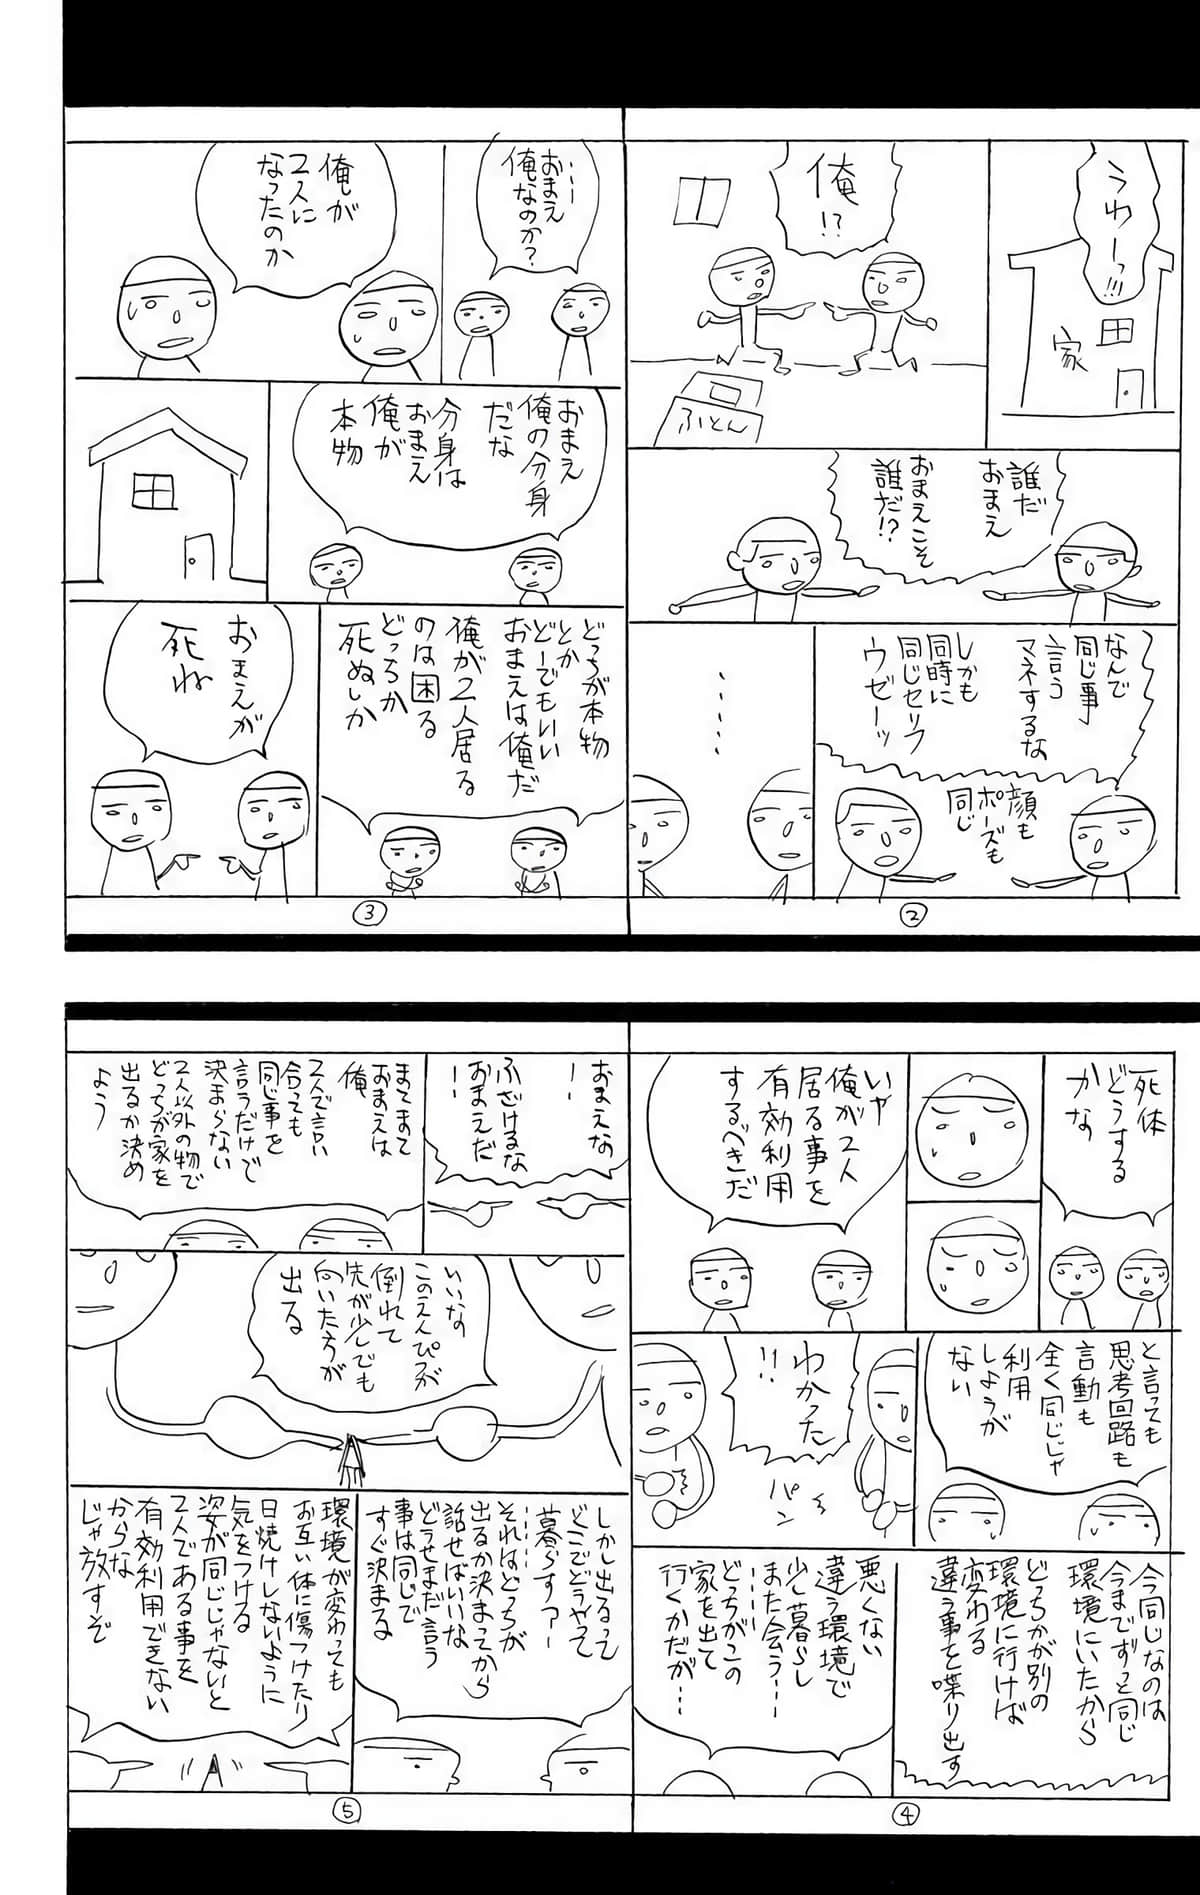 うわーっ!!!
家
俺
!?
ふとん
誰だ
おまえ
おまえこそ
誰だ!?
なんで
同じ事
言う
マネするな
しかも
同時に
同じセリフ
ウゼーッ
顔も
ポーズも
同じ
・・・・・
②
・・・
おまえ
俺なのか?
俺が
2人に
なったのか
おまえ
俺の分身
だな
分身は
おまえ
俺が
本物
どっちが本物
とか
どーでもいい
おまえは俺だ
俺が2人居る
のは困る
どっちか
死ぬしか
おまえが
死ね
③
死体
どうする
かな
いや
俺が2人
居る事を
有効利用
するべきだ
と言っても
思考回路も
言動も
全く同じじゃ
利用
しようが
ない
わかった
!!
パン
今同じなのは
今までずっと同じ
環境にいたから
どっちかが別の
環境に行けば
変わる
違う事を喋り出す
悪くない
違う環境で
少し暮らし
また会う・・・
・・・・・
どっちがこの
家を出て
行くかだが・・・
④
おまえな
ー
ふざけるな
おまえだ
ー
まてまて
おまえは
俺
2人で言い
合っても
同じ事を
言うだけで
決まらない
2人以外の物で
どっちが家を
出るか決め
よう
いいな
このえんぴつが
倒れて
先が少しでも
向いた方が
出る
しかし出るって
どこでどうやって
暮らす?ー
・・・・・
それはどっちが
出るか決まってから
話せばいいな
どうせまだ言う
事は同じで
すぐ決まる
環境が変わっても
お互い体に傷つけたり
日焼けしないように
気をつける
姿が同じじゃないと
2人である事を
有効利用できない
からな
じゃ放すぞ
⑤